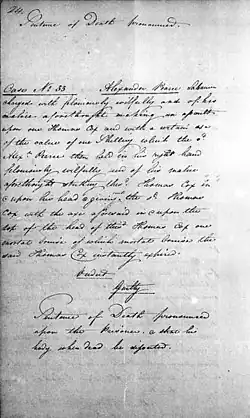 24.
Sentence of Death pronounced.
Case No 33 Alexander Pearce Labourer
charged with feloniously wilfully and of his
malice aforethought making an assault
upon one Thomas Cox and with a certain axe
of the value of one Shilling which the sd
Alexr Pearce then held in his right hand
feloniously wilfully and of his malice
aforethought striking the sd Thomas Cox in
& upon his head & giving the sd Thomas
Cox with the axe aforesaid in & upon the
top of the head of the sd Thomas Cox one
mortal bruise of which mortal bruise the
said Thomas Cox instantly expired.
Verdict
Guilty
Sentence of Death pronounced
upon the Prisoner & that his
body when dead be dissected.